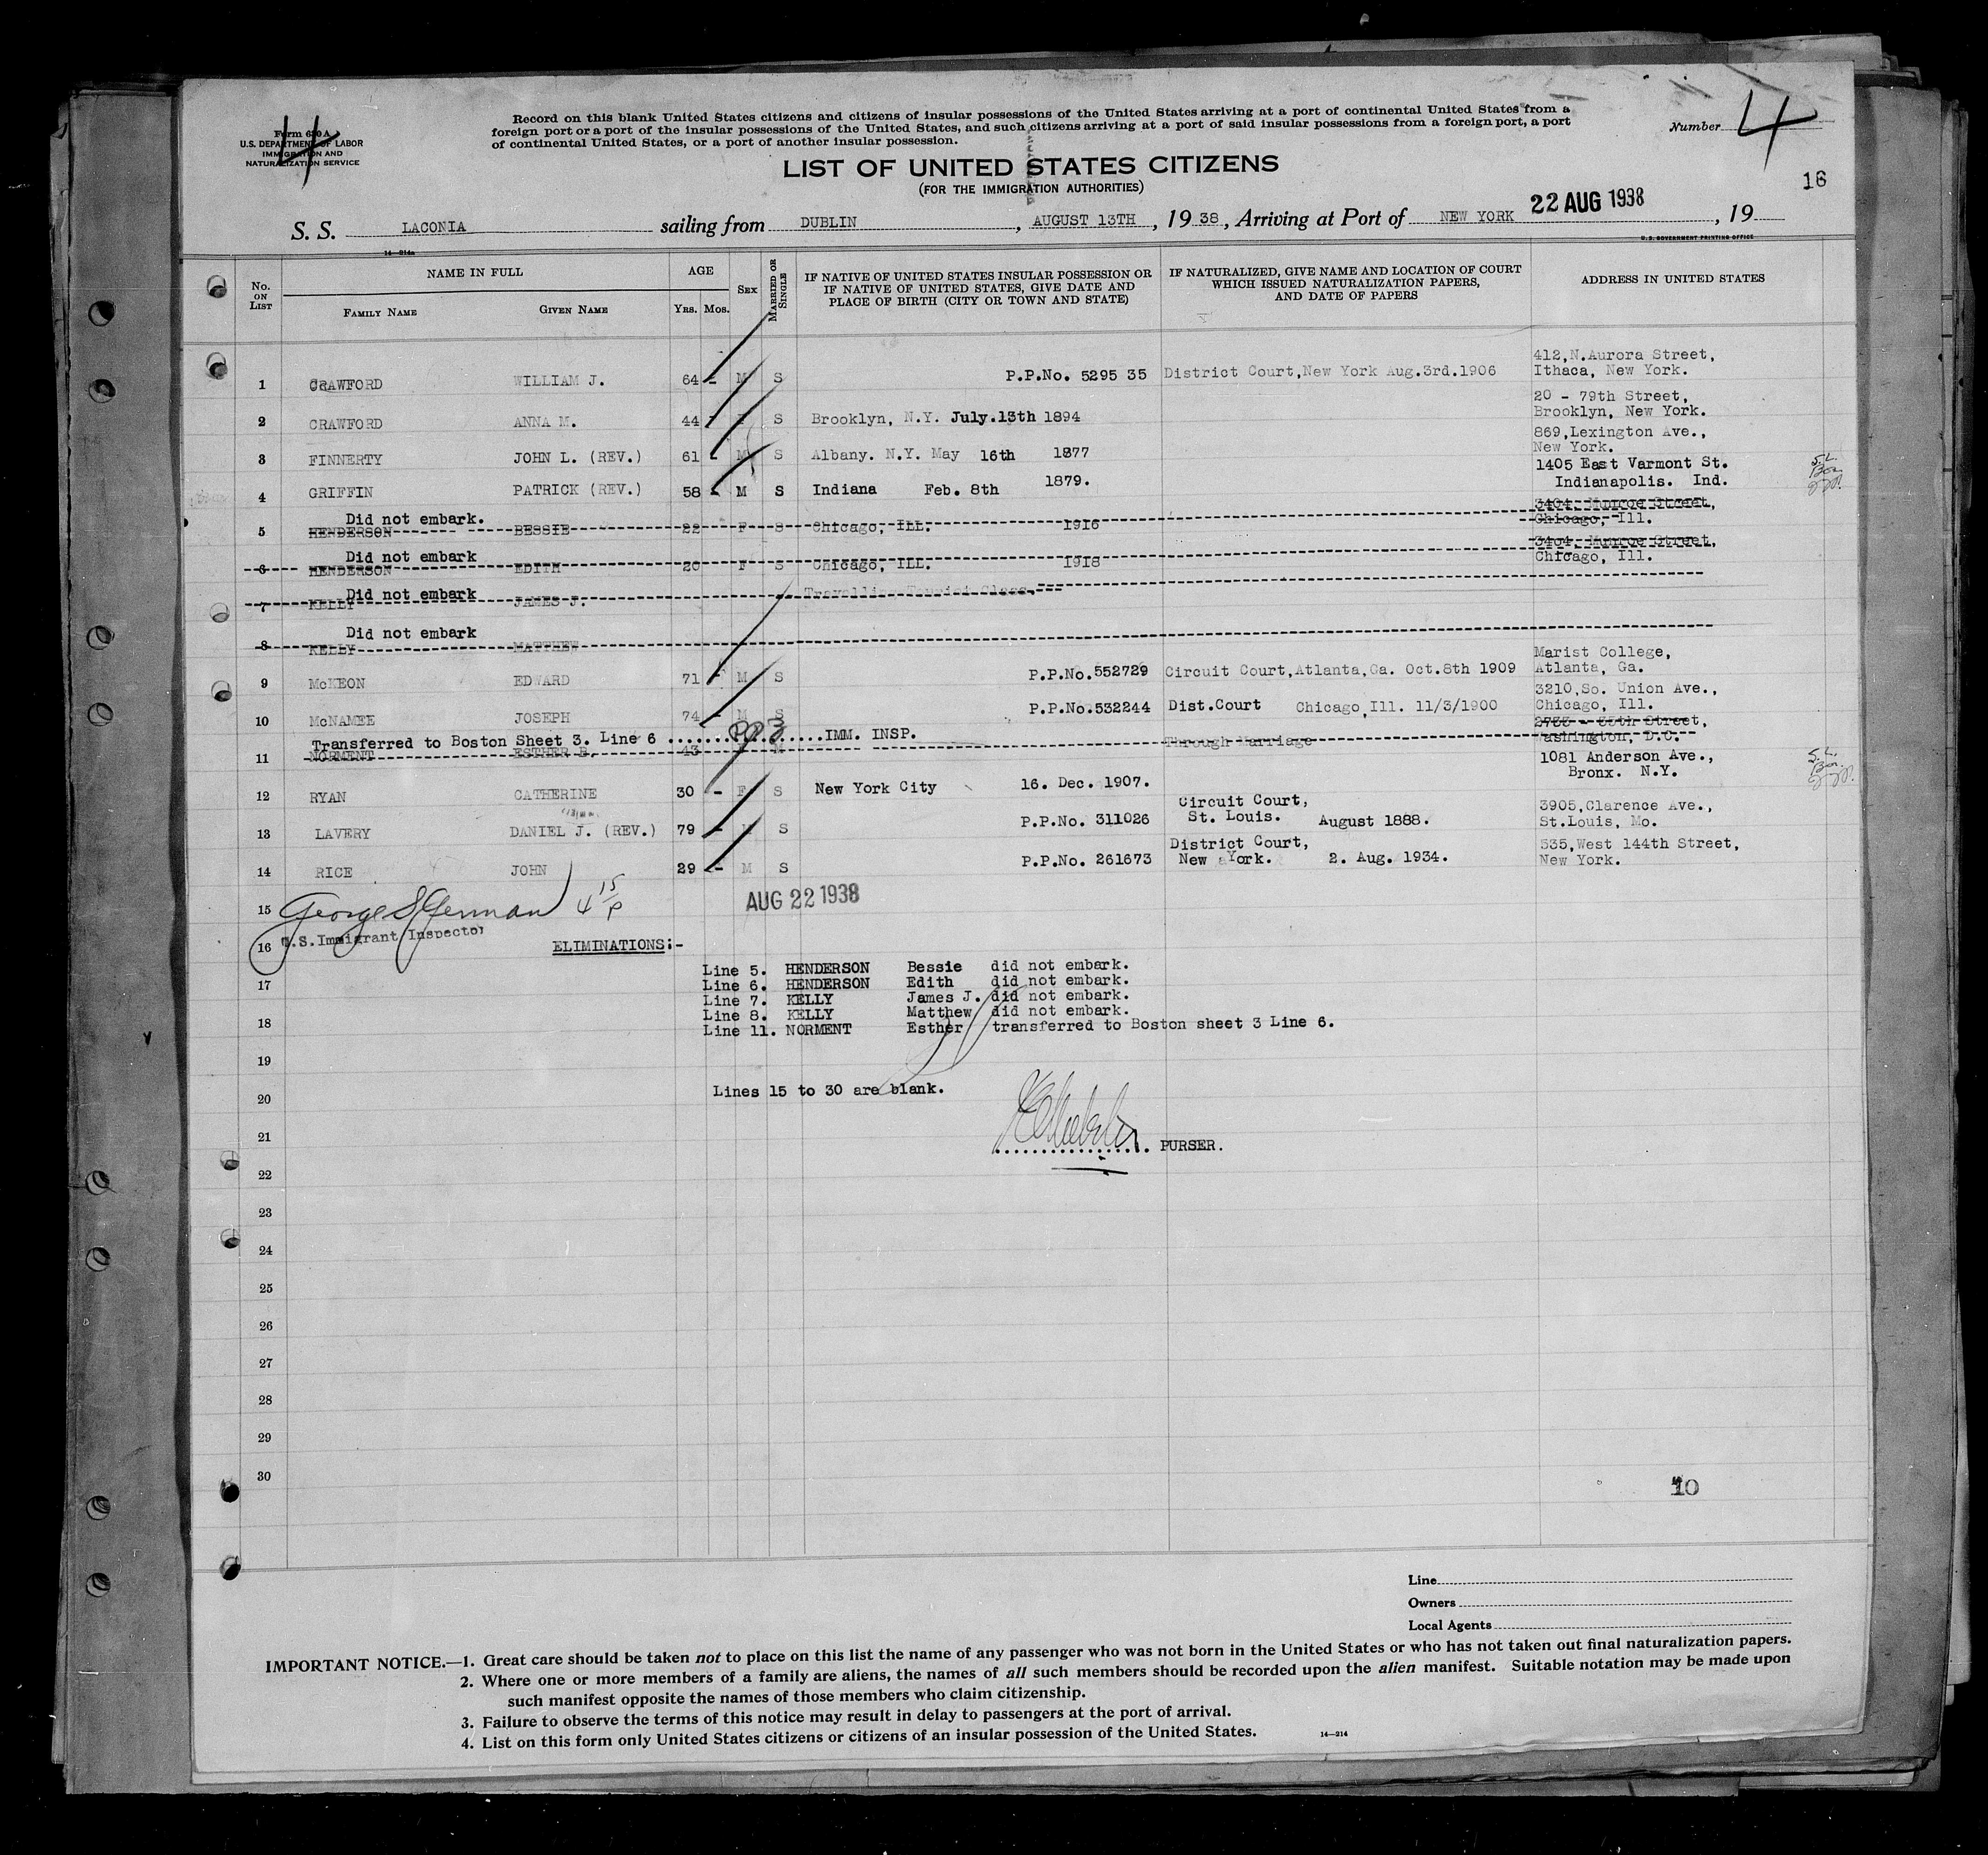 Form 630 A
U.S. DEPARTMENT OF LABOR
IMMIGRATION AND
NATURALIZATION SERVICE
4
Record on this blank United States citizens and citizens of insular possessions of the United States arriving at a port of continental United States from a
foreign port or a port of the insular possessions of the United States, and such citizens arriving at a port of said insular possessions from a foreign port, a port
of continental United States, or a port of another insular possession.
Number 4
16
LIST OF UNITED STATES CITIZENS
(FOR THE IMMIGRATION AUTHORITIES)
S. S. LACONIA sailing from DUBLIN, AUGUST 13TH, 1938, Arriving at Port of NEW YORK 22 AUG 1938, 19
14—214a
U.S. GOVERNMENT PRINTING OFFICE
No. ON LIST NAME IN FULL FAMILY NAME GIVEN NAME AGE YRS. MOS. SEX MARRIED OR SINGLE IF NATIVE OF UNITED STATES INSULAR POSSESSION OR IF NATIVE OF UNITED STATES, GIVE DATE AND PLACE OF BIRTH (CITY OR TOWN AND STATE) IF NATURALIZED, GIVE NAME AND LOCATION OF COURT WHICH ISSUED NATURALIZATION PAPERS, AND DATE OF PAPERS ADDRESS IN UNITED STATES
1 CRAWFORD WILLIAM J. 64 - M S P.P.No. 5295 35 District Court,New York Aug.3rd.1906 412,N.Aurora Street, Ithaca, New York.
2 CRAWFORD ANNA M. 44 - F S Brooklyn, N.Y. July.13th 1894 20 - 79th Street, Brooklyn, New York.
3 FINNERTY JOHN L. (REV.) 61 - M S Albany. N.Y. May 16th 1877 869,Lexington Ave., New York.
4 GRIFFIN PATRICK (REV.) 58 - M S Indiana Feb. 8th 1879. 1405 East Varmont St. Indianapolis. Ind.
Did not embark.
5 HENDERSON BESSIE 22 F S Chicago, ILL. 1916 3404, Munroe Street, Chicago, Ill.
Did not embark
6 HENDERSON EDITH 20 F S Chicago, ILL. 1918 3404, Munroe Street, Chicago, Ill.
Did not embark
7 KELLY JAMES J. Travelling Tourist Class.
Did not embark
8 KELLY MATTHEW
9 McKEON EDWARD 71 - M S P.P.No.552729 Circuit Court,Atlanta,Ga. Oct.8th 1909 Marist College, Atlanta, Ga.
10 McNAMEE JOSEPH 74 - M S P.P.No.532244 Dist.Court Chicago,Ill. 11/3/1900 3210,So. Union Ave., Chicago, Ill.
Transferred to Boston Sheet 3. Line 6 ....................IMM. INSP.
11 NORMENT ESTHER B. 43 F M Through Marriage Street, Washington, D.C.
12 RYAN CATHERINE 30 - F S New York City 16. Dec. 1907. 1081 Anderson Ave., Bronx. N.Y.
13 LAVERY DANIEL J. (REV.) 79 - M S P.P.No. 311026 Circuit Court, St. Louis. August 1888. 3905,Clarence Ave., St.Louis, Mo.
14 RICE JOHN 29 - M S P.P.No. 261673 District Court, New York. 2. Aug. 1934. 535,West 144th Street, New York.
15 George S German 4 15 P AUG 22 1938
16 U.S.Immigrant Inspector ELIMINATIONS:-
Line 5. HENDERSON Bessie did not embark.
17 Line 6. HENDERSON Edith did not embark.
Line 7. KELLY James J. did not embark.
Line 8. KELLY Matthew did not embark.
18 Line 11. NORMENT Esther transferred to Boston sheet 3 Line 6.
19
20 Lines 15 to 30 are blank.
21 ................. PURSER.
22
23
24
25
26
27
28
29
30
10
Line
Owners
Local Agents
IMPORTANT NOTICE.—1. Great care should be taken not to place on this list the name of any passenger who was not born in the United States or who has not taken out final naturalization papers.
2. Where one or more members of a family are aliens, the names of all such members should be recorded upon the alien manifest. Suitable notation may be made upon
such manifest opposite the names of those members who claim citizenship.
3. Failure to observe the terms of this notice may result in delay to passengers at the port of arrival.
4. List on this form only United States citizens or citizens of an insular possession of the United States. 14—214